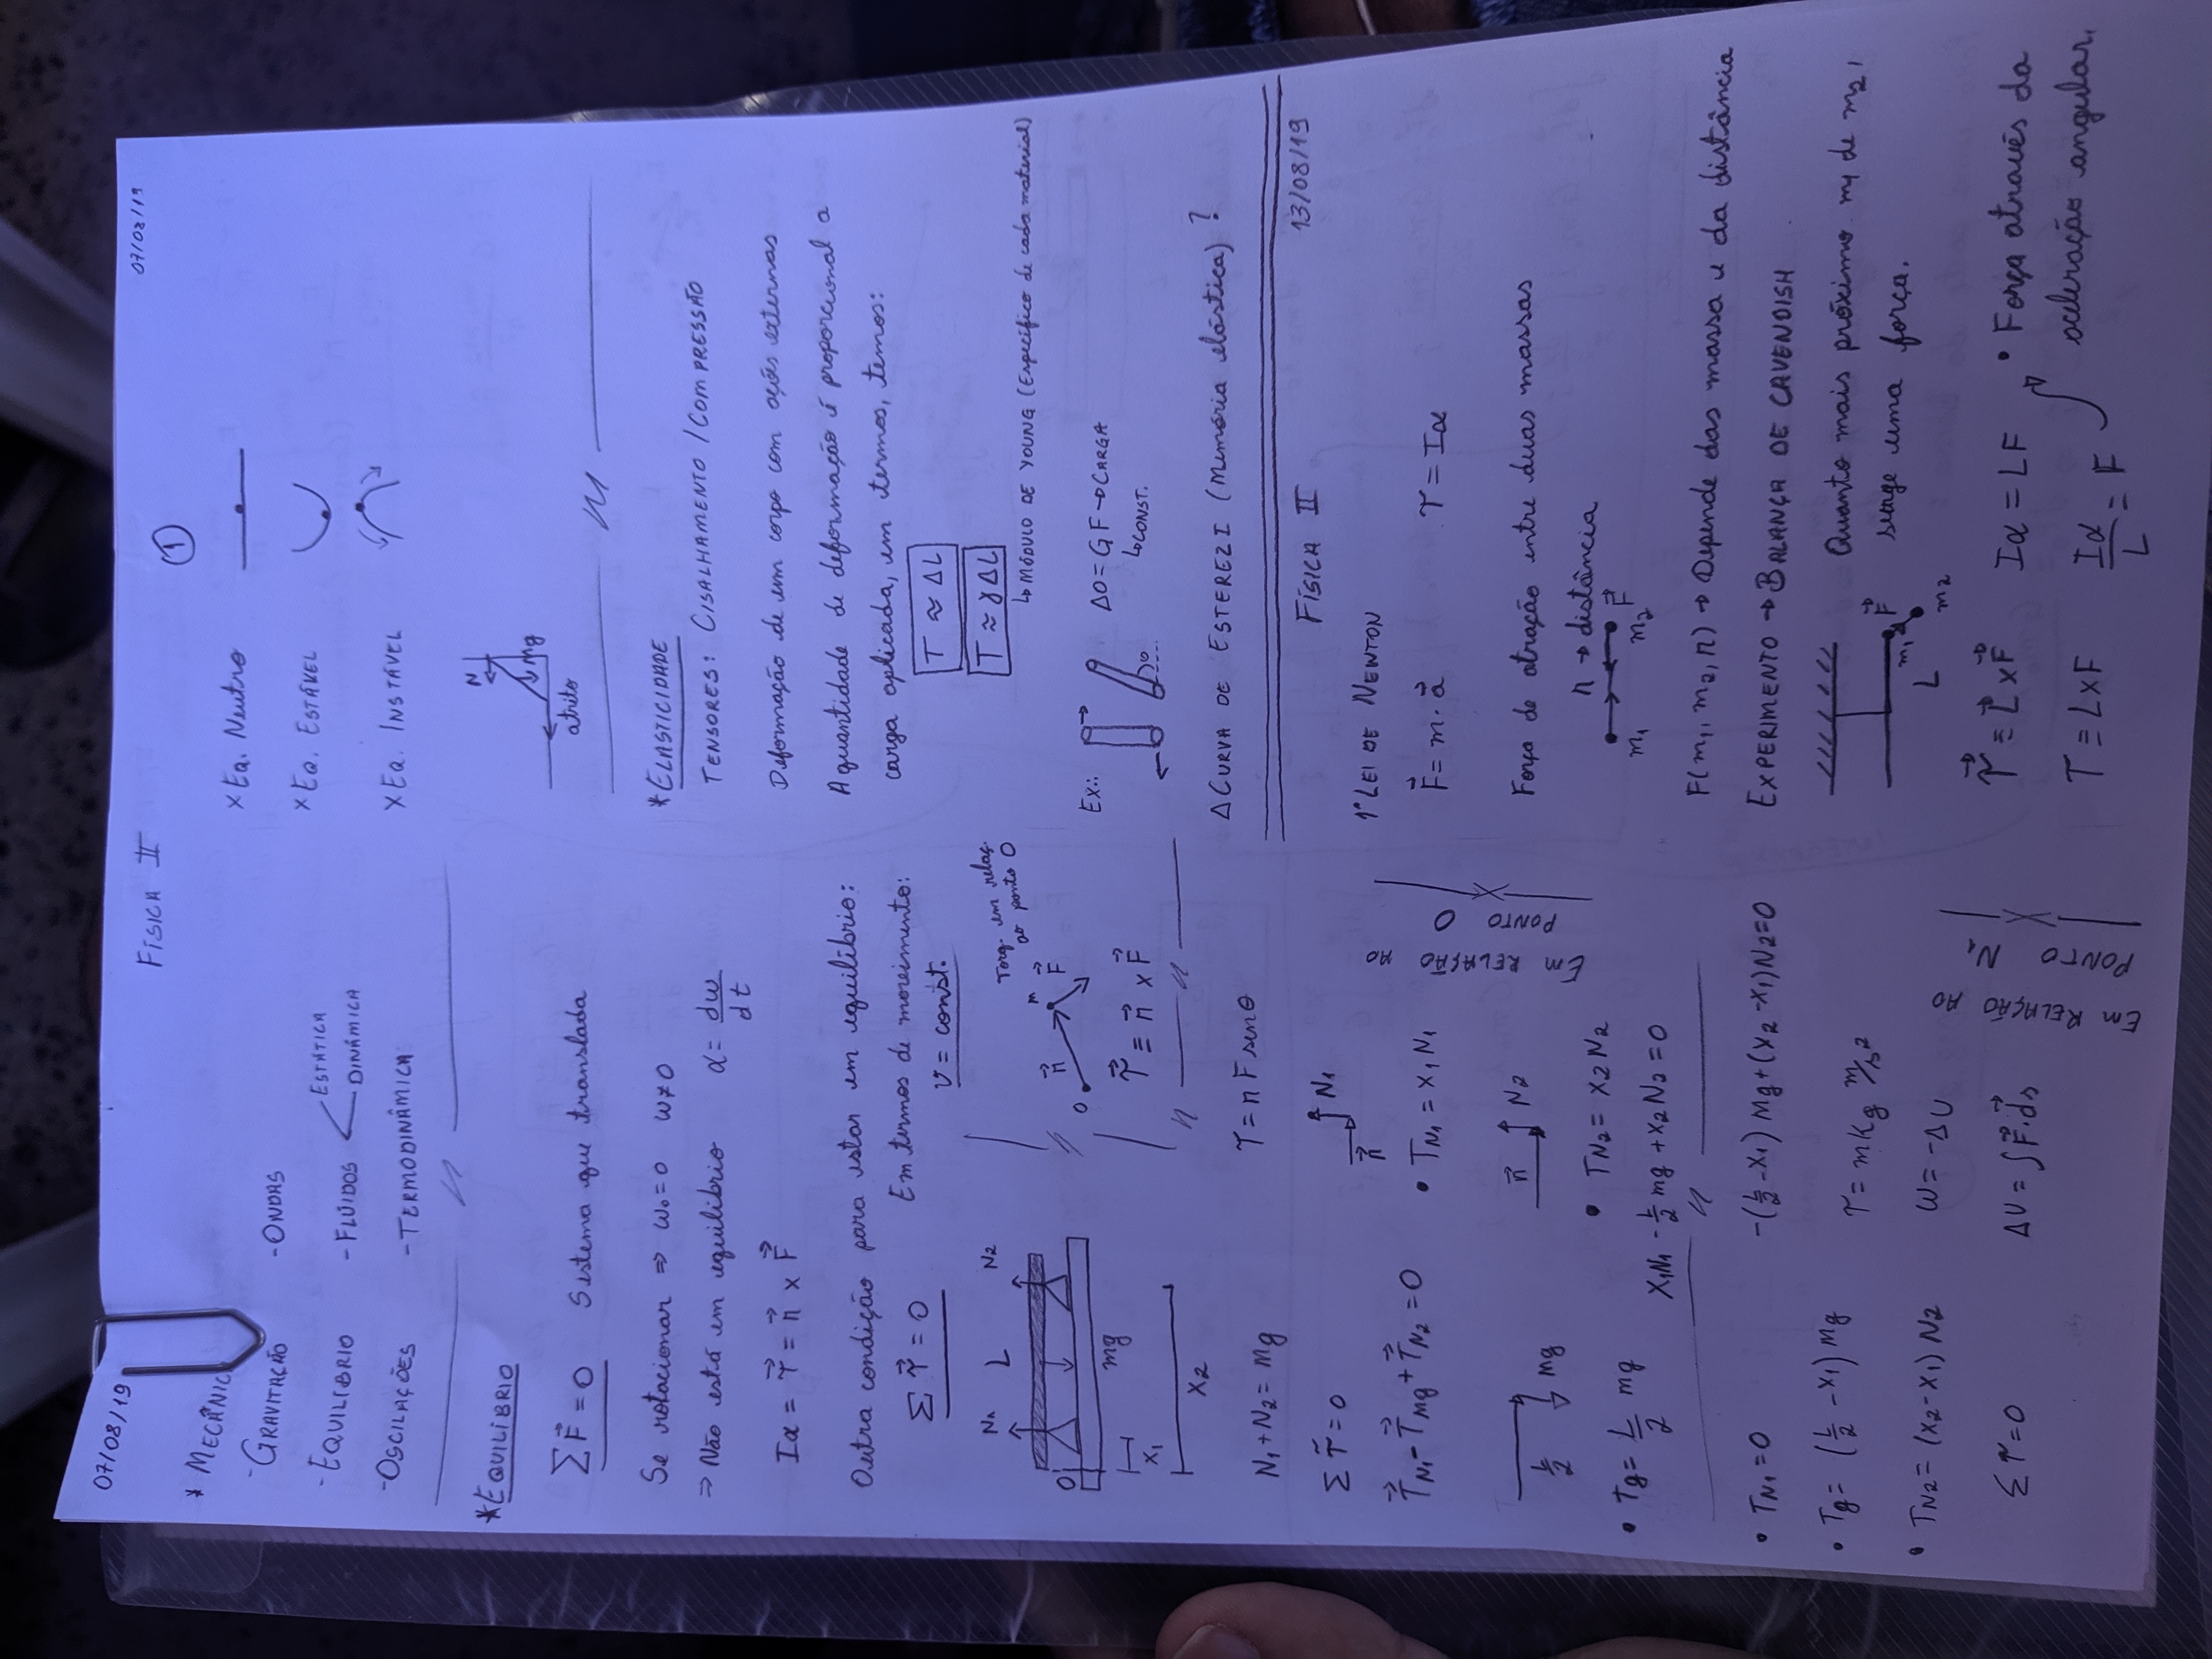 07/08/19
FÍSICA II
* MECÂNIC
- GRAVITAÇÃO
- EQUILÍBRIO
- OSCILAÇÕES
- ONDAS
- FLÚIDOS
ESTÁTICA
DINÂMICA
- TERMODINÂMICA
* EQUILÍBRIO
Σ F⃗ = 0 Sistema que translada
Se rotacionar ⇒ ω₀ = 0 ω ≠ 0
⇒ Não está em equilíbrio α = dω/dt
Iα = τ⃗ = r⃗ × F⃗
Outra condição para estar em equilíbrio:
Σ τ⃗ = 0
Em termos de movimento:
v = const.
N₁ L N₂
O
mg
x₁
x₂
Torq. em relaç.
ao ponto O
O r⃗ m F⃗
τ⃗ ≡ r⃗ × F⃗
N₁ + N₂ = mg
τ = r F senθ
Σ τ⃗ = 0
τ⃗N₁ - τ⃗mg + τ⃗N₂ = 0
r⃗ N₁
• τN₁ = x₁ N₁
L/2 mg
r⃗ N₂
• τN₂ = x₂ N₂
• τg = L/2 mg
x₁N₁ - L/2 mg + x₂N₂ = 0
EM RELAÇÃO AO
PONTO O
• τN₁ = 0
-(L/2 - x₁) mg + (x₂ - x₁) N₂ = 0
• τg = (L/2 - x₁) mg
τ = m kg m/s²
• τN₂ = (x₂ - x₁) N₂
W = -ΔU
Σ τ = 0
ΔU = ∫ F⃗ · ds⃗
EM RELAÇÃO AO
PONTO N₁
07/08/19
1
× Eq. Neutro
× Eq. ESTÁVEL
× Eq. INSTÁVEL
N
mg
atrito
* ELASTICIDADE
TENSORES: CISALHAMENTO / COMPRESSÃO
Deformação de um corpo com ações externas
A quantidade de deformação é proporcional a
carga aplicada, em termos, temos:
T ≈ ΔL
T ≈ γ ΔL
↳ MÓDULO DE YOUNG (Específico de cada material)
Ex.: θ
Δθ = G F → CARGA
↳ CONST.
Δ CURVA DE ESTEREZI (Memória elástica) ?
FÍSICA II 13/08/19
1ª LEI DE NEWTON
F⃗ = m · a⃗ τ = Iα
Força de atração entre duas massas
r → distância
m₁ m₂ F⃗
F(m₁, m₂, r) → Depende das massa e da distância
EXPERIMENTO → BALANÇA DE CAVENDISH
Quanto mais próximo m₁ de m₂,
surge uma força.
m₁ F⃗
L m₂
τ⃗ ≡ L⃗ × F⃗
Iα = LF
τ ≡ L × F
Iα/L = F
• Força através da
aceleração angular.